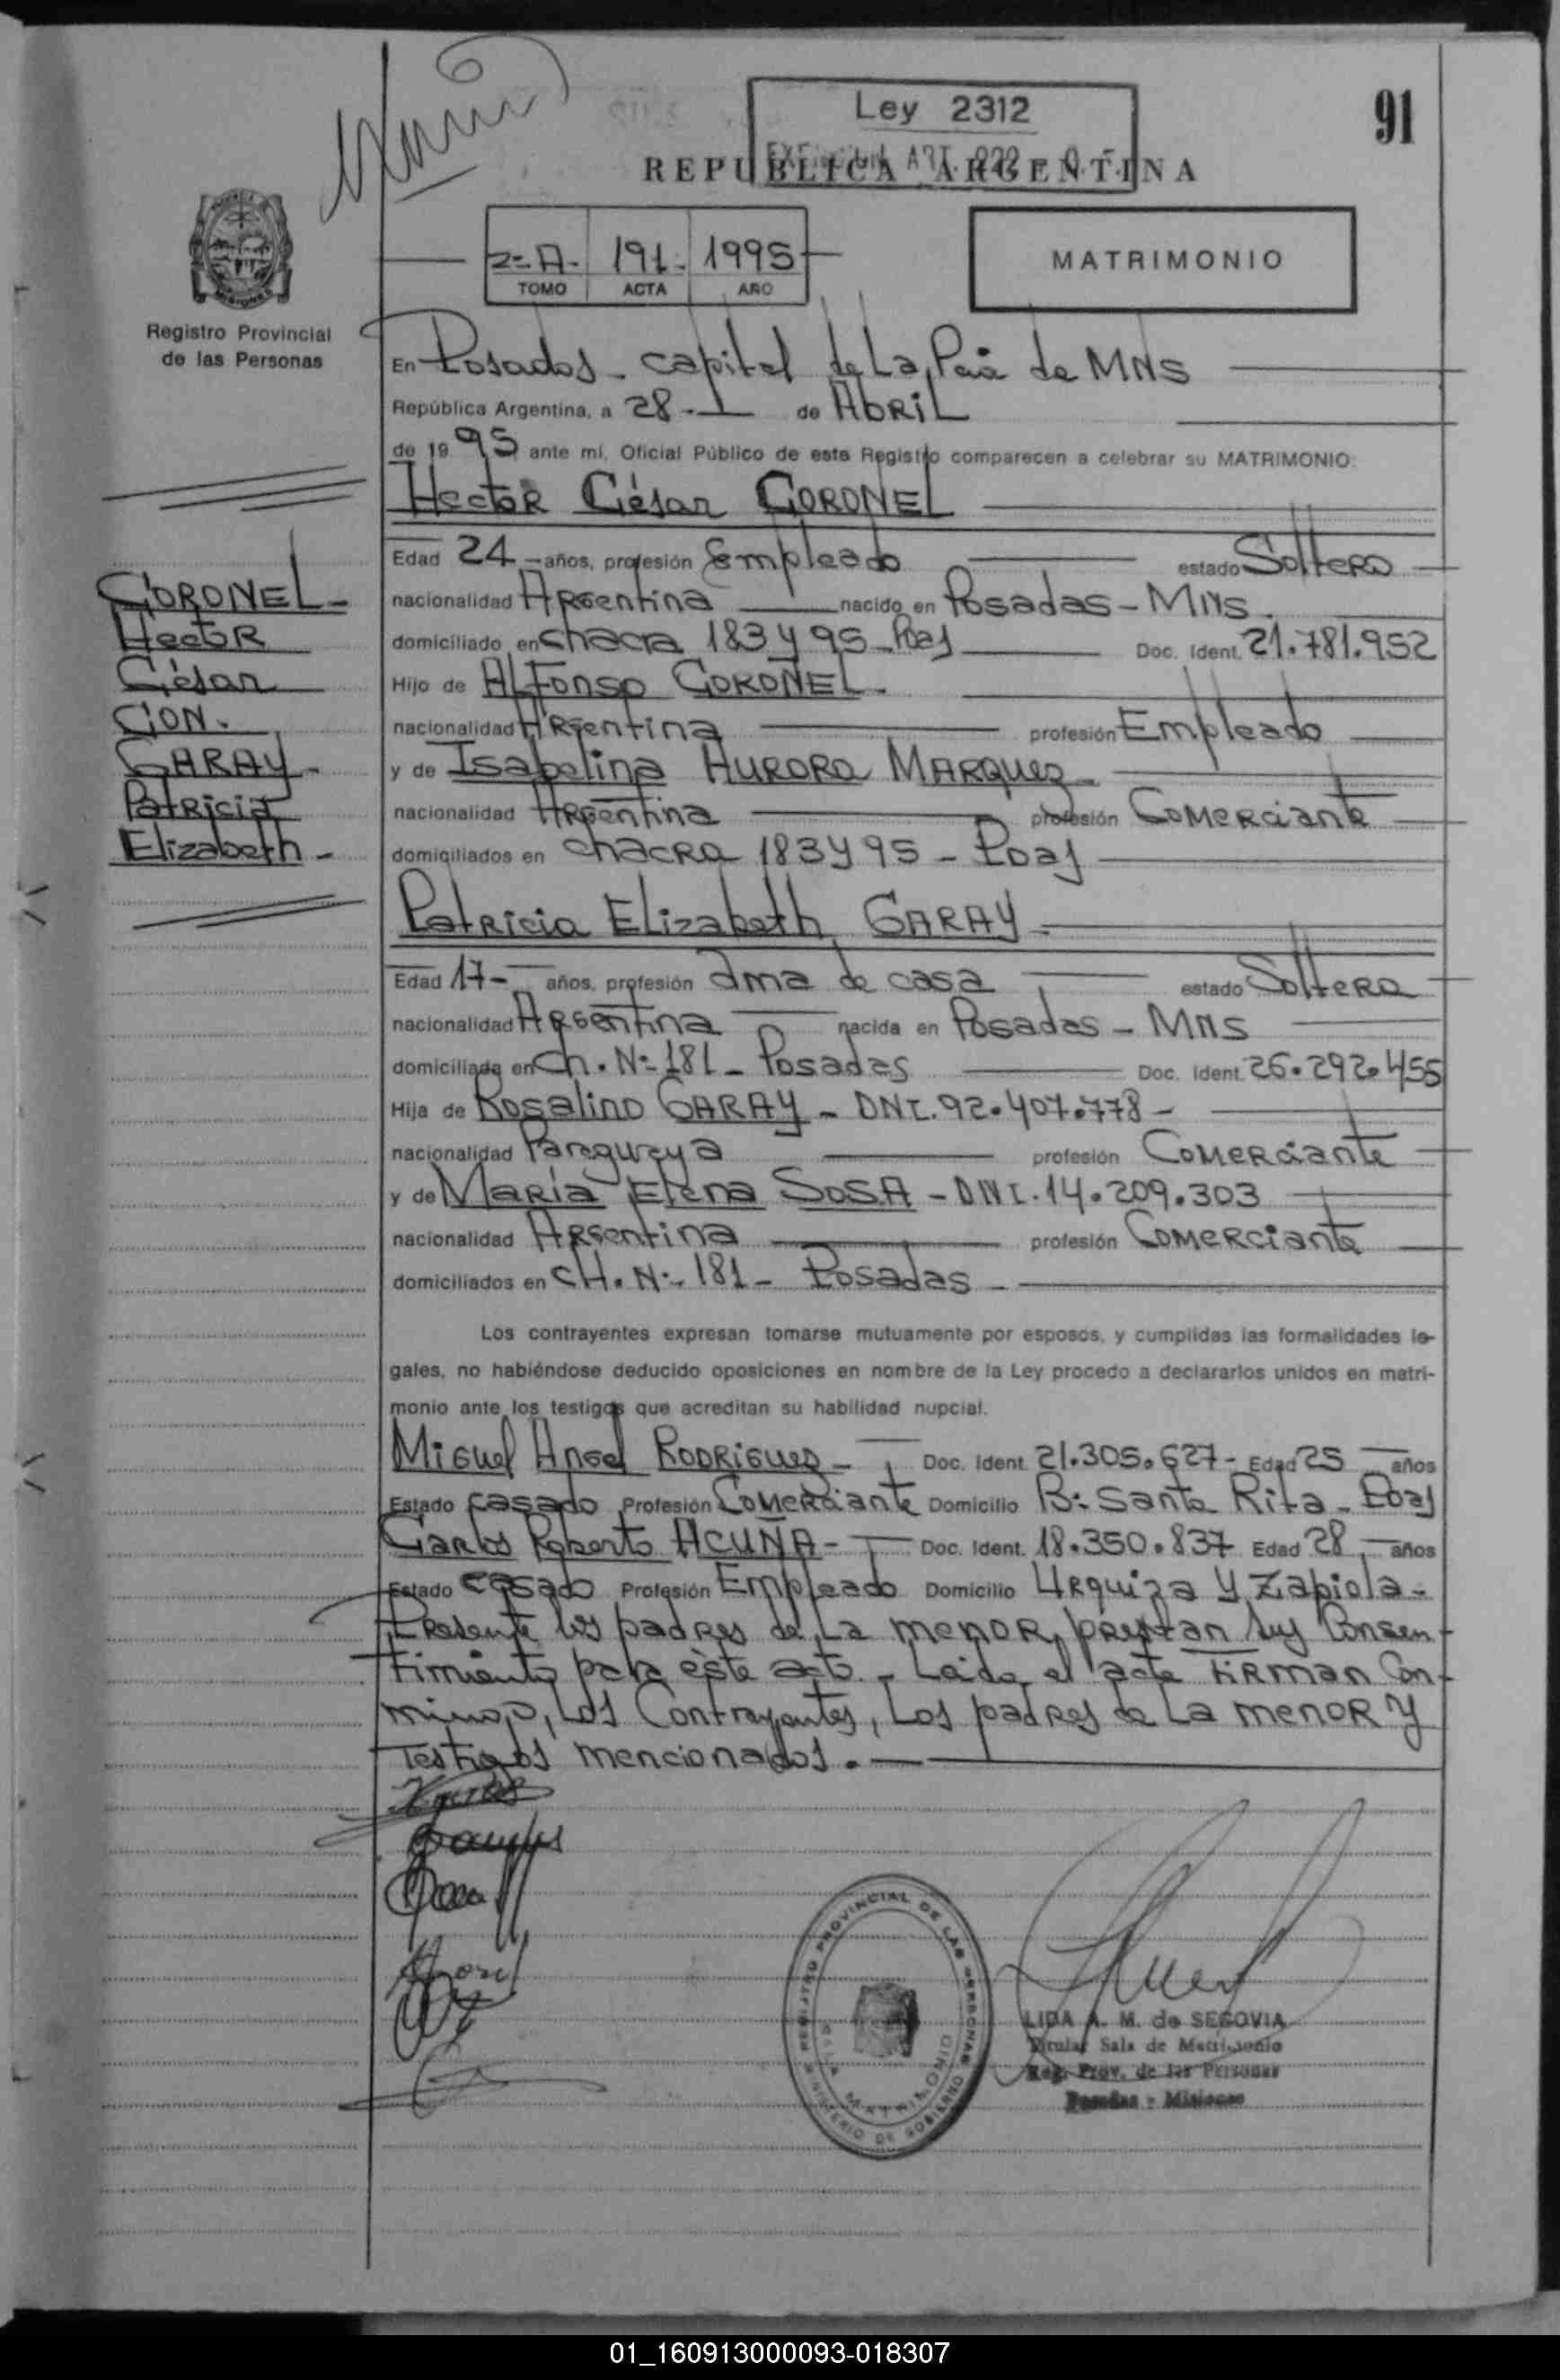 91
Ley 2312
REPUBLICA ARGENTINA
2=A- 191- 1995
TOMO ACTA AÑO
MATRIMONIO
Registro Provincial
de las Personas
En Posadas - capital de La Pcia de MNS
República Argentina, a 28- de Abril
de 1995 ante mí, Oficial Público de este Registro comparecen a celebrar su MATRIMONIO:
Hector César CORONEL
Edad 24 - años, profesión Empleado estado Soltero
nacionalidad Argentina nacido en Posadas - MNS.
domiciliado en chacra 183 y 95 - Pdas Doc. Ident. 21.781.952
Hijo de Alfonso CORONEL -
nacionalidad Argentina profesión Empleado
y de Isabelina Aurora MARQuez -
nacionalidad Argentina profesión Comerciante
domiciliados en chacra 183 y 95 - Pdas
CORONEL -
Hector
César
CON.
GARAY -
Patricia
Elizabeth -
Patricia Elizabeth GARAY -
Edad 17 - años, profesión ama de casa estado Soltera
nacionalidad Argentina nacida en Posadas - MNS
domiciliada en Ch. Nº 181 - Posadas Doc. Ident. 26.292.455
Hija de Rosalino GARAY - DNI. 92.407.778 -
nacionalidad Paraguaya profesión Comerciante
y de María Elena SOSA - DNI. 14.209.303
nacionalidad Argentina profesión Comerciante
domiciliados en CH. Nº 181 - Posadas -
Los contrayentes expresan tomarse mutuamente por esposos, y cumplidas las formalidades le-
gales, no habiéndose deducido oposiciones en nombre de la Ley procedo a declararlos unidos en matri-
monio ante los testigos que acreditan su habilidad nupcial.
Miguel Angel RODRIGUEZ - Doc. Ident. 21.305.627 - Edad 25 años
Estado casado Profesión Comerciante Domicilio Bº Santa Rita - Pdas
Carlos Roberto ACUÑA - Doc. Ident. 18.350.837 Edad 28 años
Estado casado Profesión Empleado Domicilio Urquiza y Zapiola -
Presente los padres de La menor, prestan sus Consen-
timiento para éste acto. - Leida el acta firman Con-
migo, Los Contrayentes, Los padres de La menor y
Testigos mencionados. -
REGISTRO PROVINCIAL DE LAS PERSONAS
MINISTERIO DE GOBIERNO
SALA MATRIMONIO
LIDA A. M. de SEGOVIA
Titular Sala de Matrimonio
Reg. Prov. de las Personas
Posadas - Misiones
01_160913000093-018307